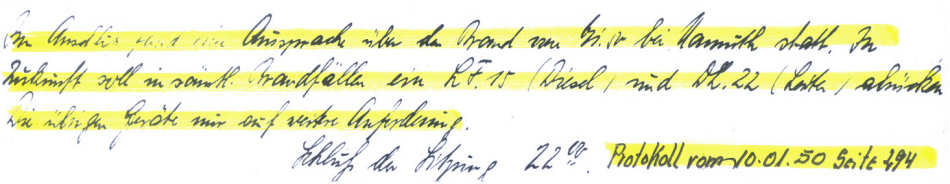 Im Anschluß fand eine Aussprache über den Brand von bei Mannuth statt. In
Zukunft soll in sämtl. Brandfällen ein L.F. 15 (Diesel) und DL. 22 (Leiter) abrücken
Die übrigen Geräte nur auf weitere Anforderung.
Schluß der Sitzung 22⁰⁰. Protokoll vom 10.01.50 Seite 294